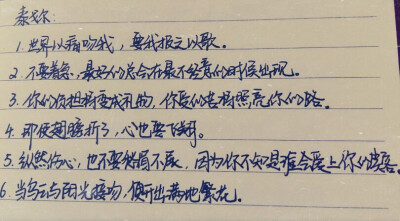 泰戈尔:
1. 世界以痛吻我，要我报之以歌。
2. 不要着急，最好的总会在最不经意的时候出现。
3. 你的负担将变成礼物，你受的苦将照亮你的路。
4. 即使翅膀折了，心也要飞翔。
5. 纵然伤心，也不要愁眉不展，因为你不知是谁会爱上你的笑容。
6. 当乌云与阳光接吻，便开出满地繁花。